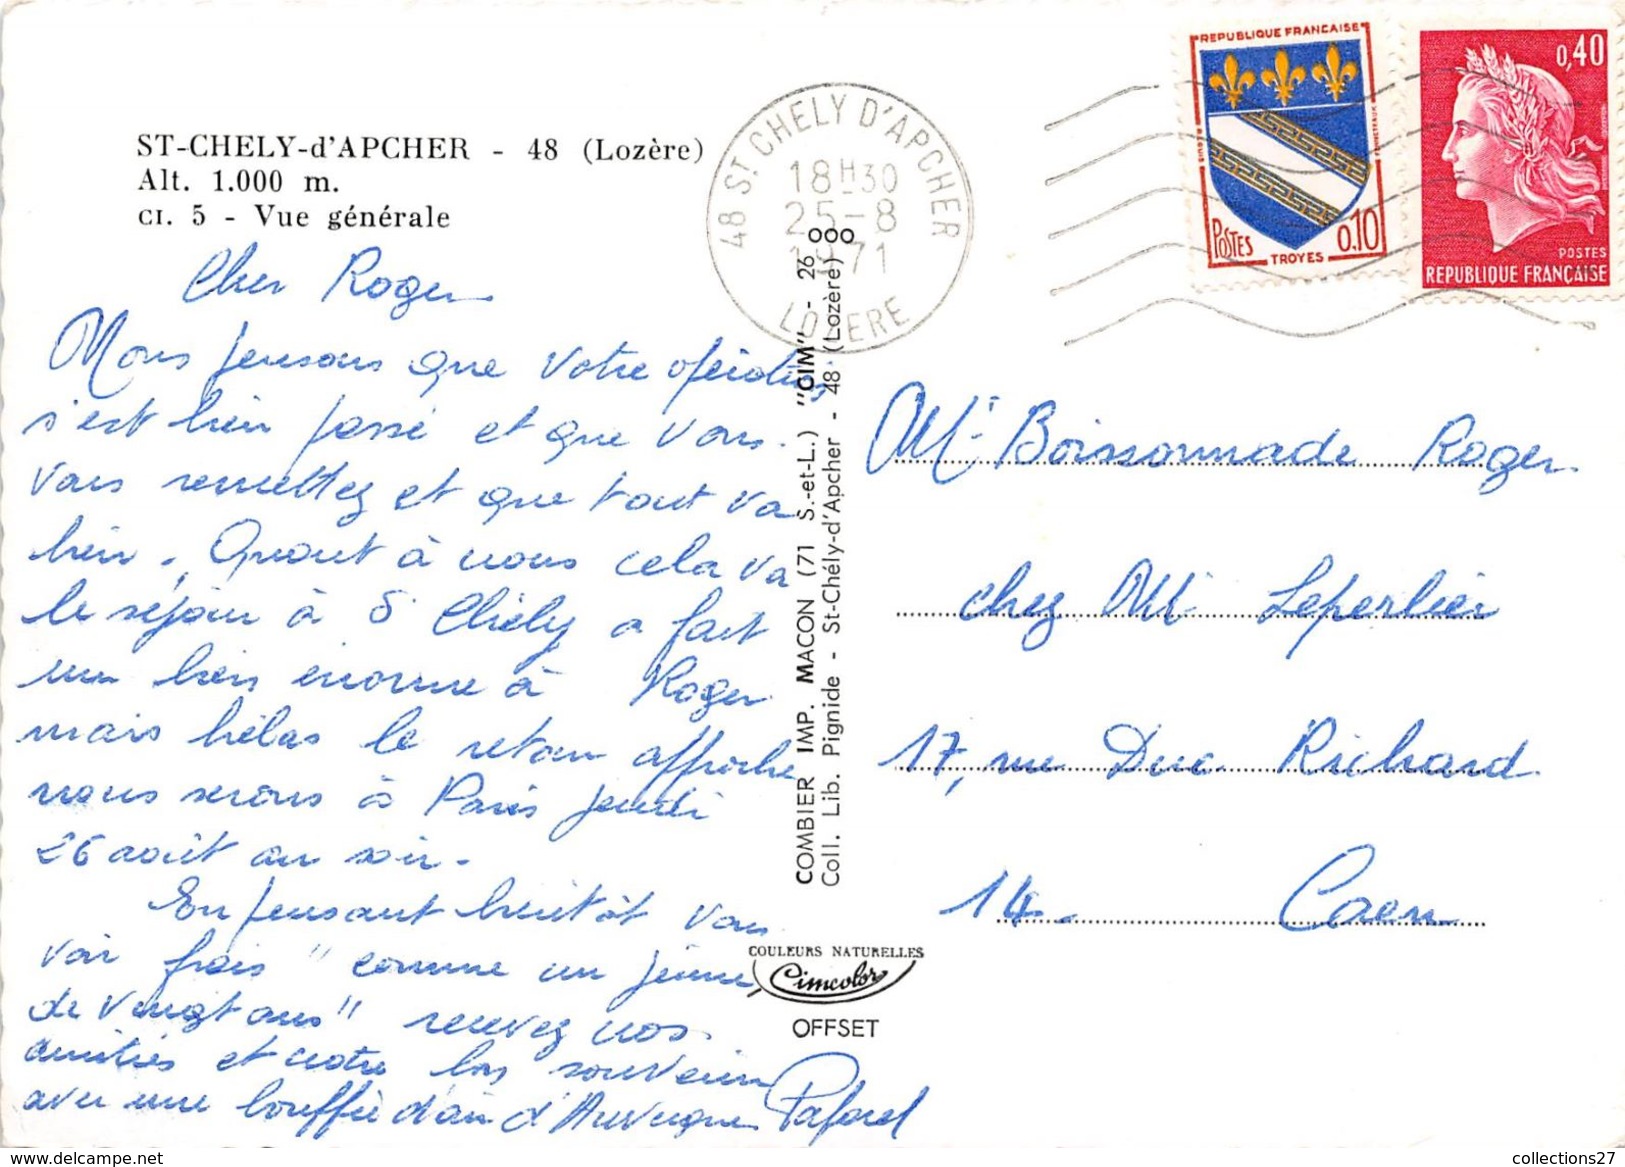 ST-CHELY-d'APCHER - 48 (Lozère)
Alt. 1.000 m.
CI. 5 - Vue générale
48 ST CHELY D'APCHER
18H30
25-8
1971
LOZERE
REPUBLIQUE FRANÇAISE
POSTES
0.10
TROYES
0,40
POSTES
REPUBLIQUE FRANÇAISE
Cher Roger
Nous pensons que votre opération
s'est bien passé et que vous
vous remettez et que tout va
bien. Quant à nous cela va
le séjour à St Chély a fait
un bien énorme à Roger
mais hélas le retour approche
nous serons à Paris jeudi
26 août au soir.
En pensant bientôt vous
voir frais "comme un jeune
de vingt ans" recevez nos
amitiés et notre bon souvenir
avec une bouffée d'air d'Auvergne
COMBIER IMP. MACON (71 S.-et-L.) "CIM" - 26
Coll. Lib. Pignide - St-Chély-d'Apcher - 48 (Lozère)
COULEURS NATURELLES
Cimcolor
OFFSET
Mr Boissonnade Roger
chez Mr Leperlier
17, rue Duc Richard
14. Caen
collections27